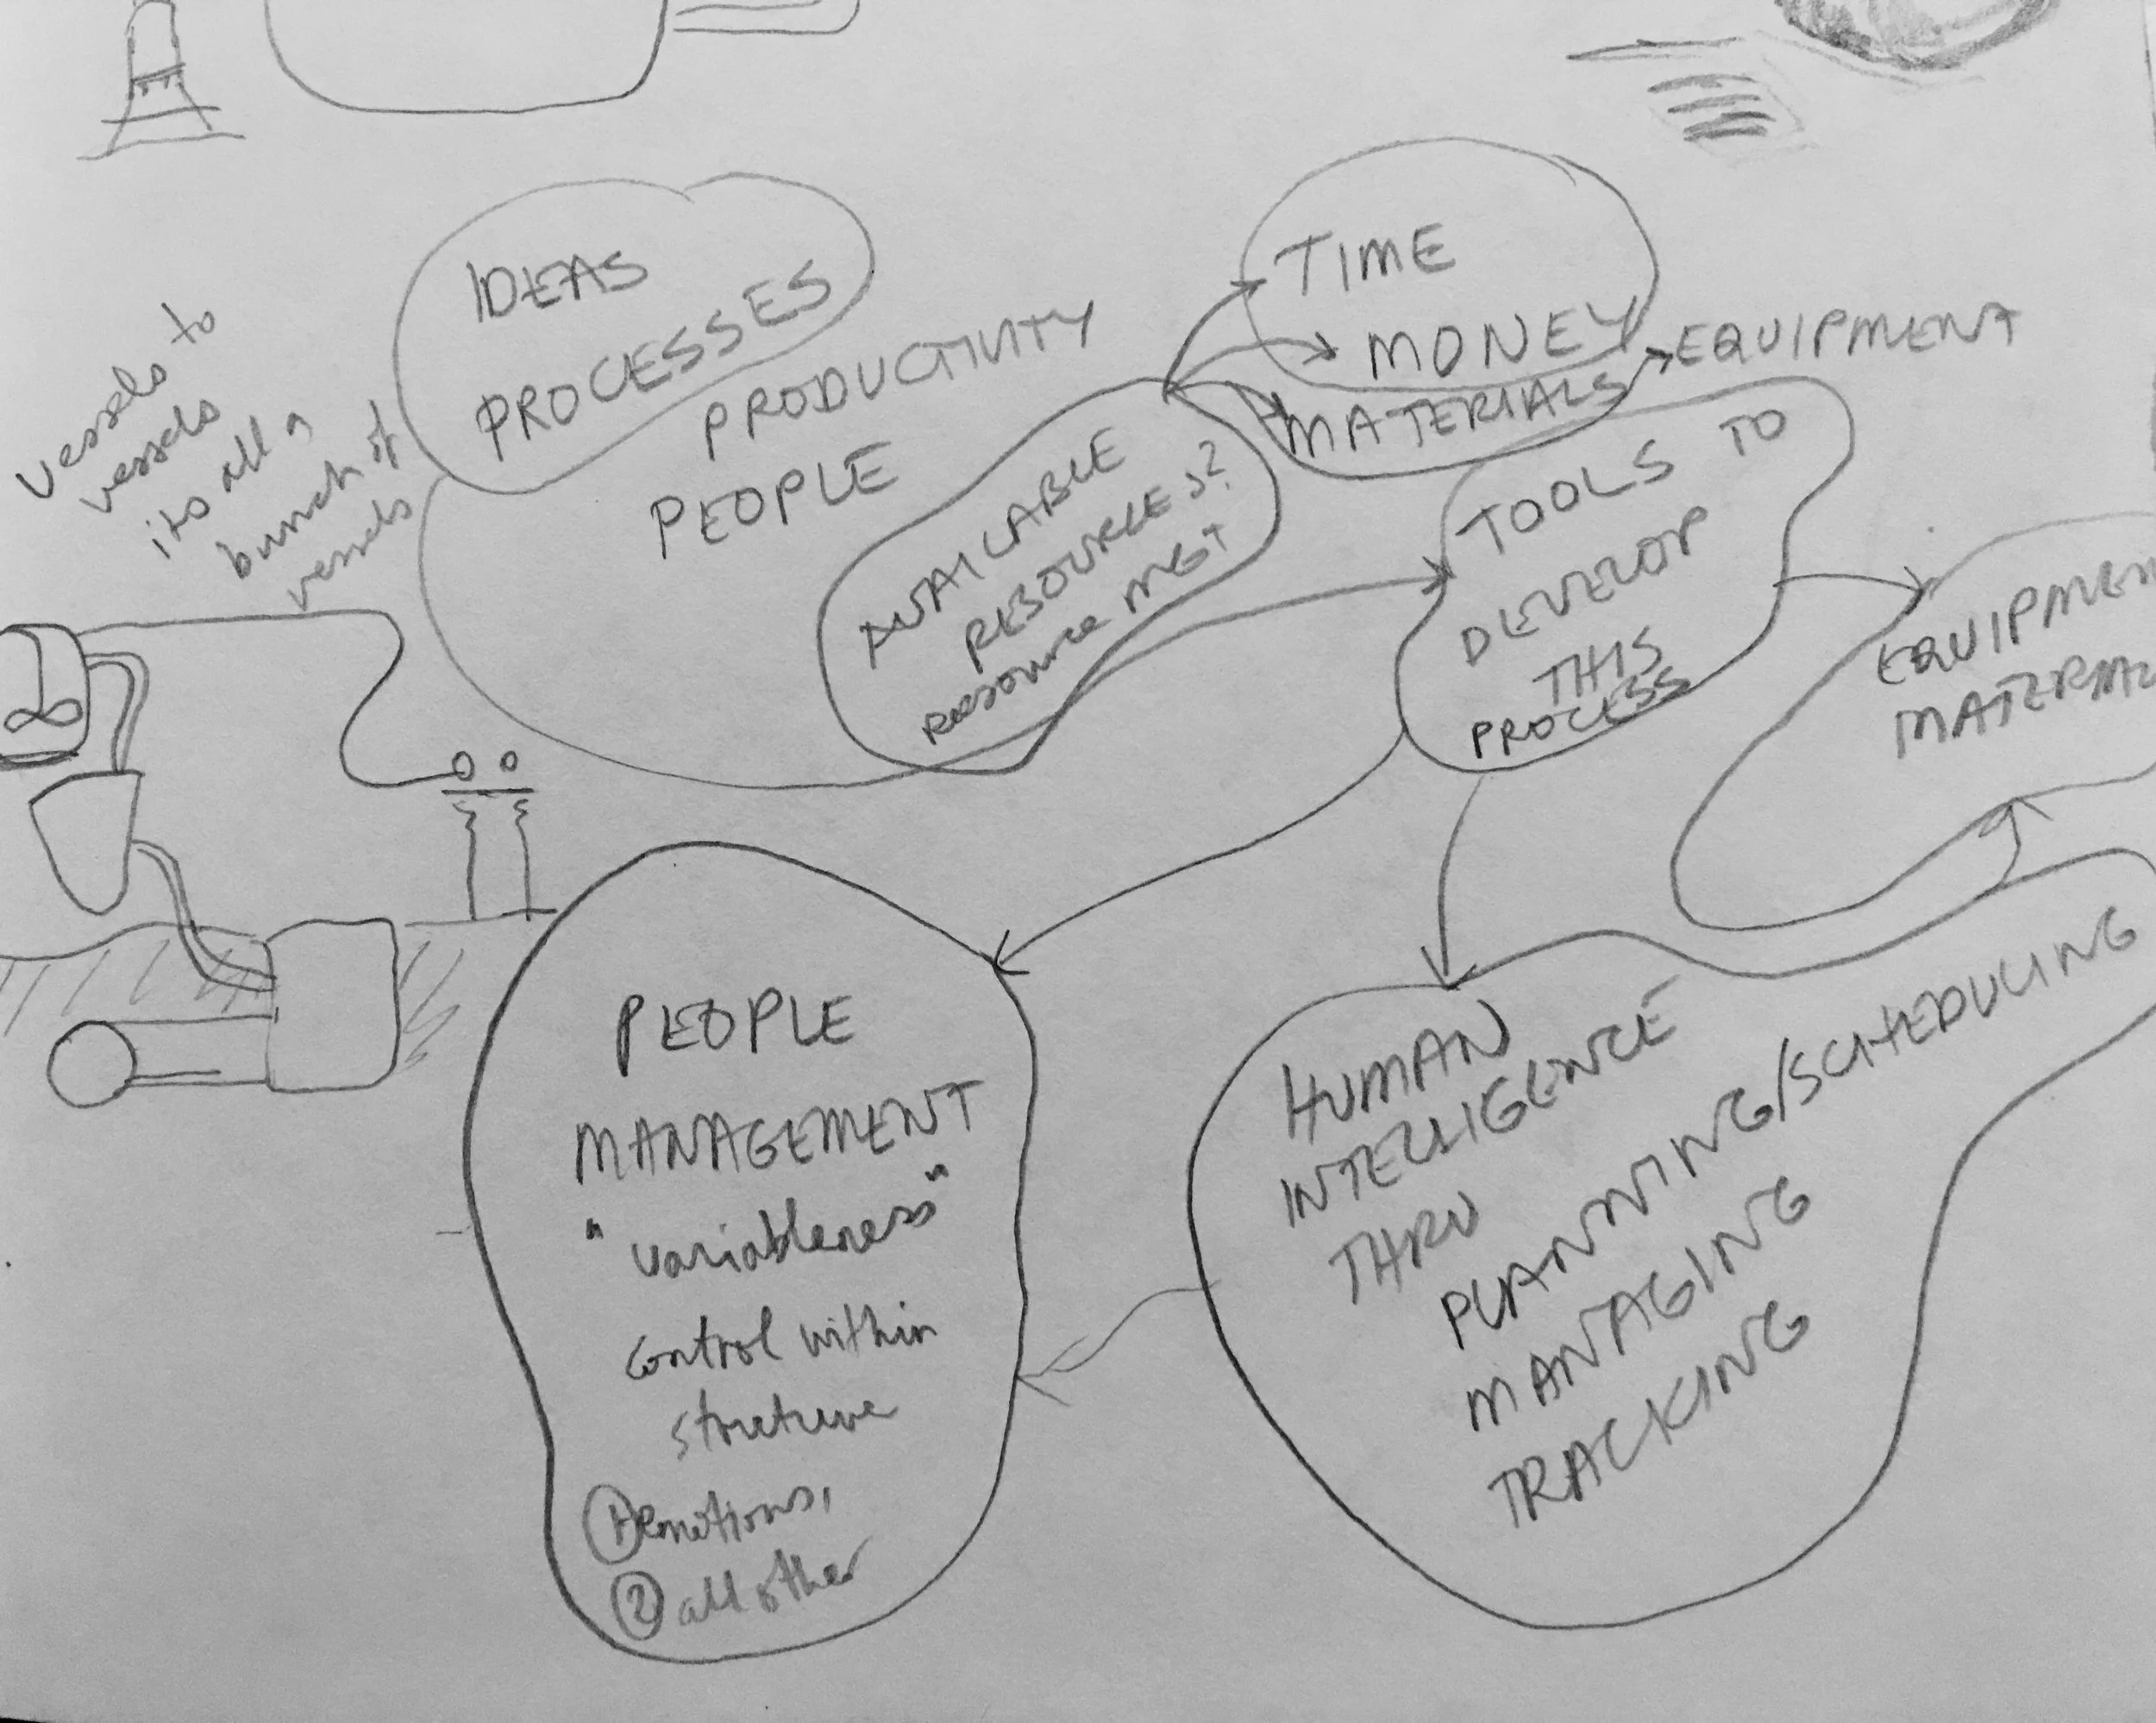 vessels to
vessels
its all a
bunch of
vessels
IDEAS
PROCESSES
PRODUCTIVITY
PEOPLE
AVAILABLE
RESOURCES?
RESOURCE MGT
TIME
MONEY
MATERIALS
EQUIPMENT
TOOLS TO
DEVELOP
THIS
PROCESS
EQUIPMEN
MATERIAL
PEOPLE
MANAGEMENT
"variableness"
control within
structure
① emotions,
② all other
HUMAN
INTELLIGENCE
THRU
PLANNING/SCHEDULING
MANAGING
TRACKING